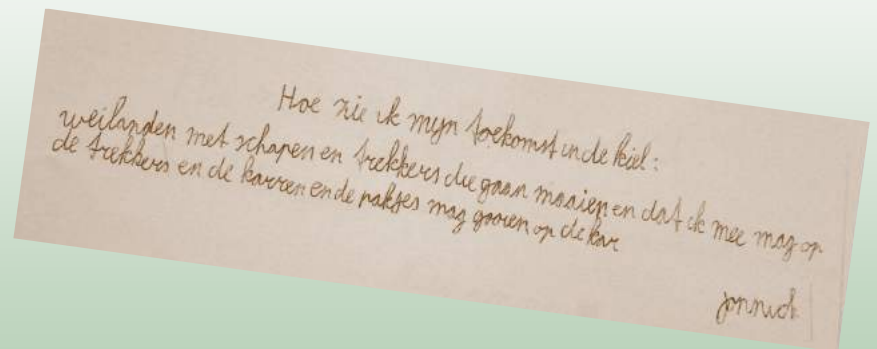 Hoe zie ik mijn toekomst in de kiel:
weilanden met schapen en trekkers die gaan maaien en dat ik mee mag op
de trekkers en de karren en de pakjes mag gooien op de kar
Jonnick